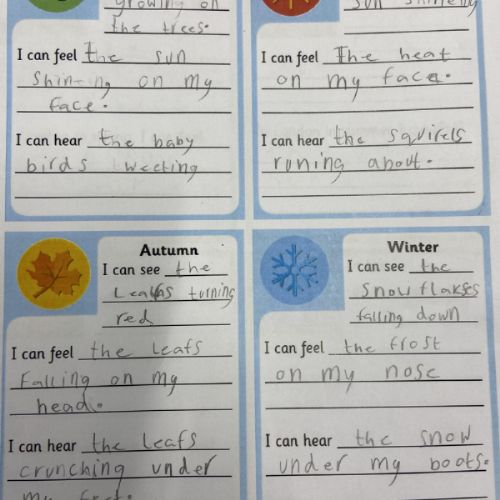 growing on
the trees.
I can feel the sun
shining on my
face.
I can hear the baby
birds tweeting
sun
I can feel The heat
on my face.
I can hear the squirels
runing about.
Autumn
I can see the
Leafs turning
red
I can feel the leafs
Falling on my
head.
I can hear the leafs
crunching under
my feet.
Winter
I can see the
Snow flakes
falling down
I can feel the frost
on my nose
I can hear the snow
under my boots.